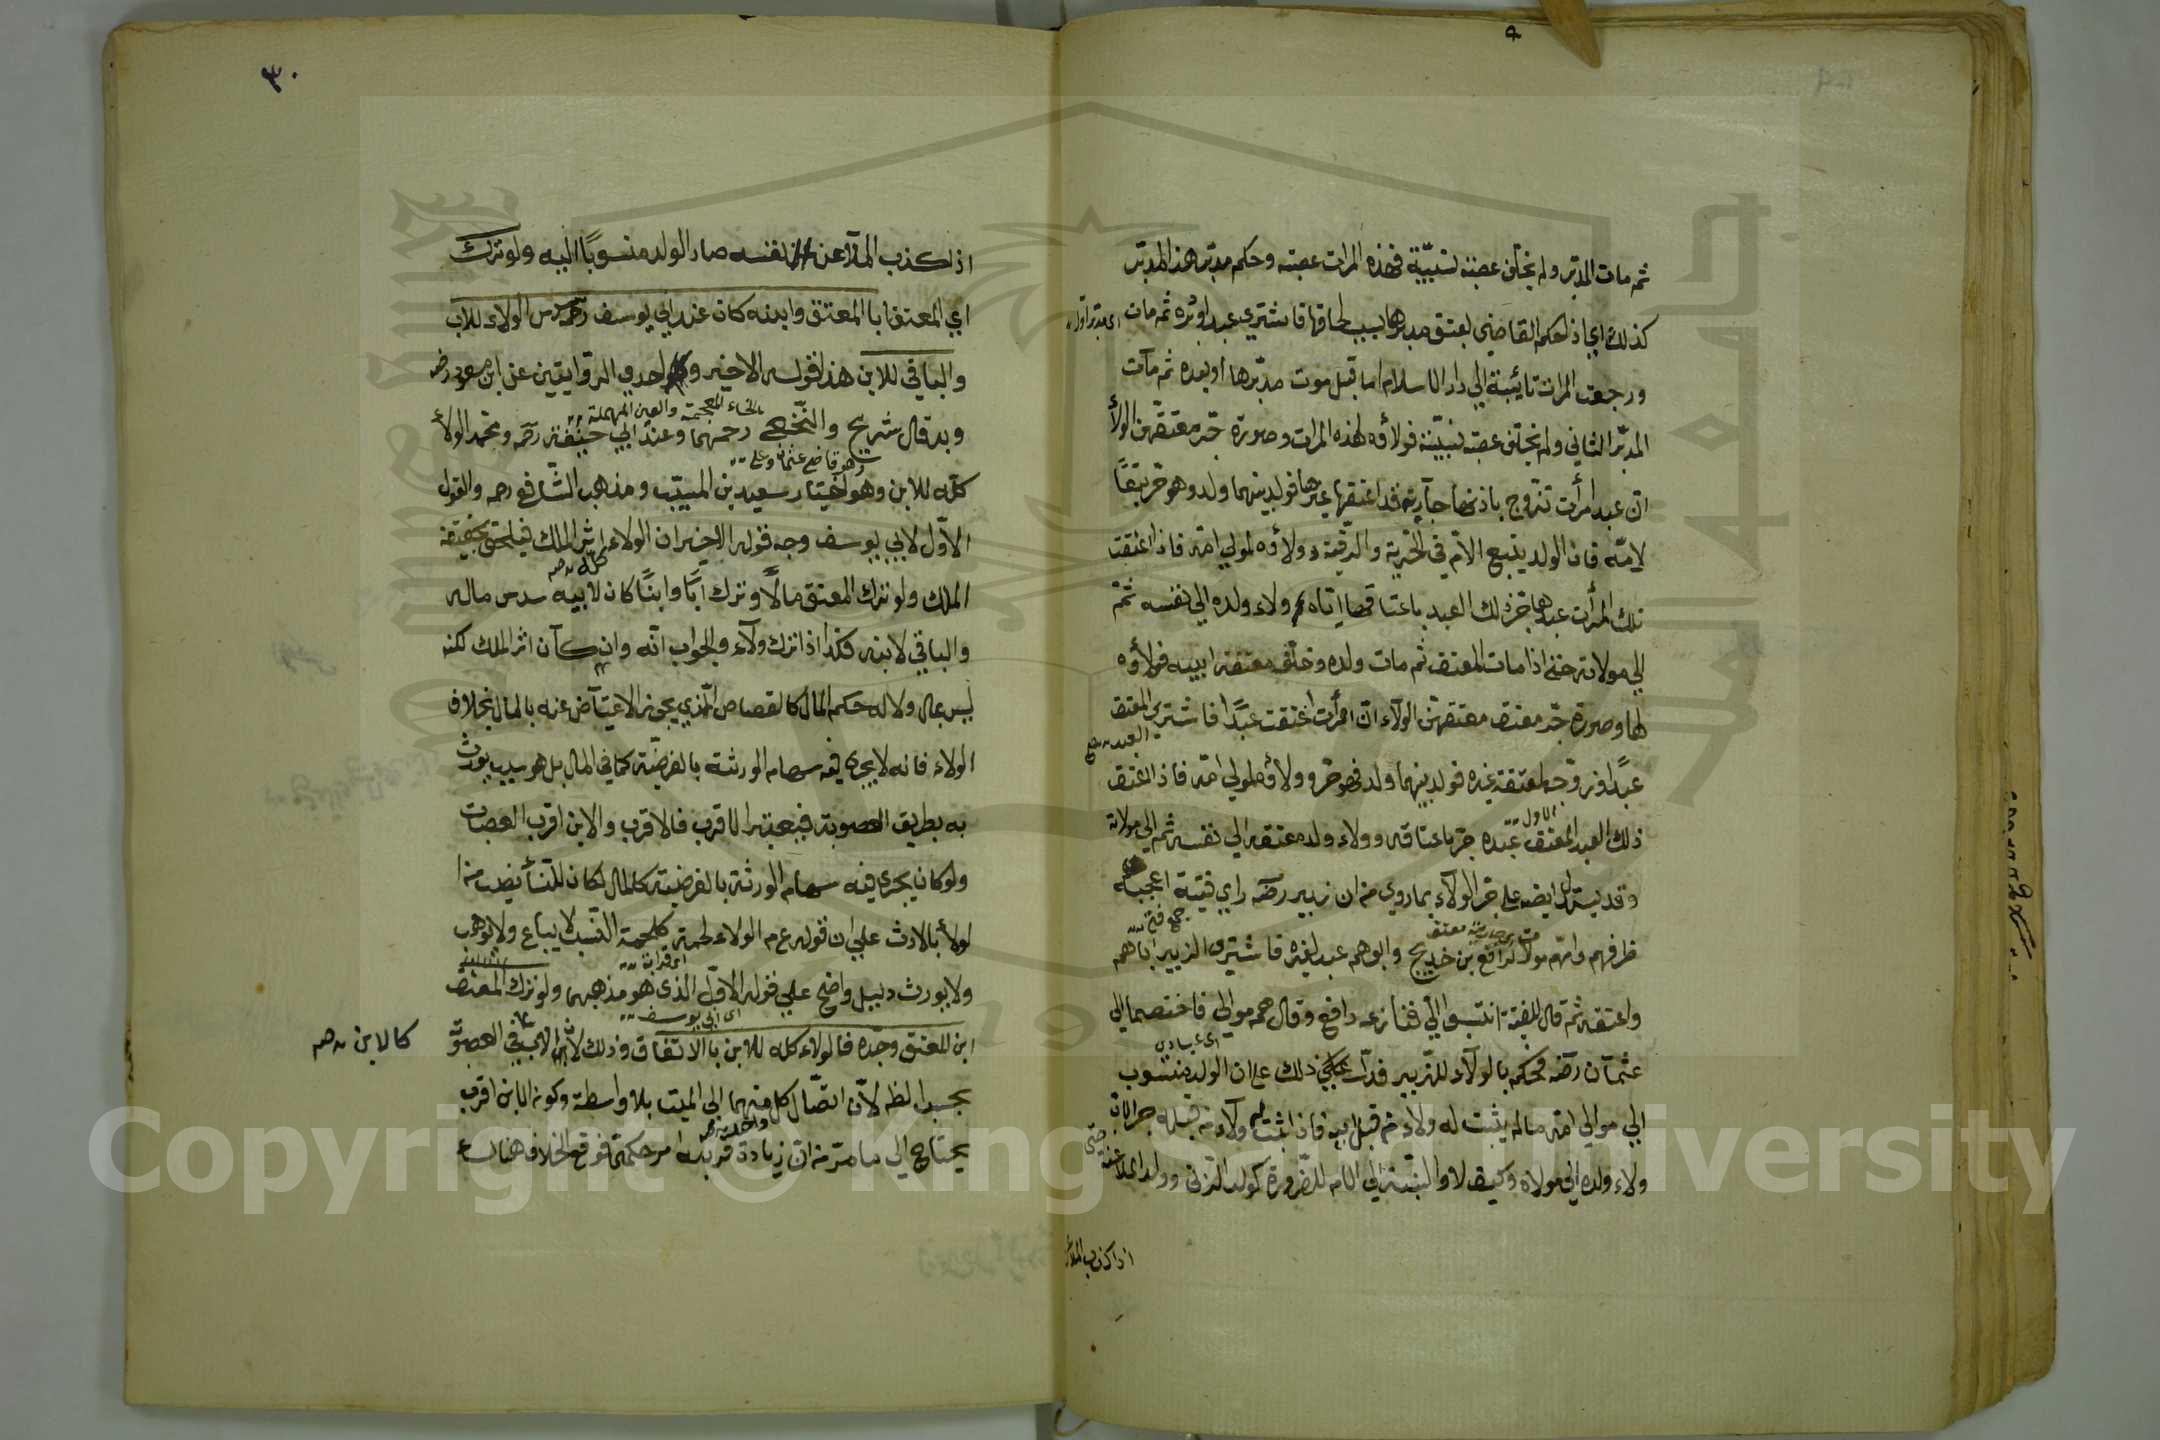 ثم مات المدبر ولم يخلف عصبة نسبية فهذه المرات عصبته وحكم مدبر هذا المدبر
كذلك اي اذا حكم القاضي بعتق مدبرها بسبب لحاقها فاشترى عبدا ودبره ثم مات
ورجعت المرات تائبة الي دار الاسلام اما قبل موت مدبرها او بعده ثم مات
المدبر الثاني ولم يخلف عصبة نسبية فولاؤه لهذه المرات وصورة جر معتقهن الولاء
ان عبد امرأت تزوج باذنها جارية قد اعتقها غيرها فولد بينهما ولد وهو حر تبعًا
لامه فان الولد يتبع الام في الحرية والرقية وولاؤه لمولي امه فاذا اعتقت
تلك المرأت عبدها جر ذلك العبد باعتاقها اياه ولاء ولده الي نفسه ثم
الي مولاته حتى اذا مات المعتق ثم مات ولده وخلف معتقة ابيه فولاؤه
لها وصورة جر معتق معتقهن الولاء ان امرأت اعتقت عبدًا فاشترى المعتق
عبدًا وزوجه بمعتقة غيره فولد بينهما ولد فهو حر وولاؤه لمولي امه فاذا اعتق
ذلك العبد المعتق عبده جر باعتاقه ولاء ولد معتقه الي نفسه ثم الي مولاته
الاول
وقد يستدل ايضا على جر الولاء بما روي من ان زبير رضه راي فتية اعجبه
ظرفهم وامهم مولاة لرافع بن خديج وابوهم عبد لغيره فاشترى الزبير اباهم
واعتقه ثم قال للفتية انتسبوا الي فنازعه رافع وقال هم موالي فاختصما الي
عثمان رضه فحكم بالولاء للزبير فدل ذلك على ان الولد منسوب
الي موالي امه ما لم يثبت له ولاء من قبل ابيه فاذا ثبت له ولاء من قبله جر الاب
ولاء ولده الي مولاه وكيف لا والنسبة الي الام للضرورة كولد الزنى وولد الملاعنة حتى
اذا كذب الملاعن
٣٠
اذا كذب الملاعن نفسه صار الولد منسوبًا اليه ولو ترك
اي المعتق ابا المعتق وابنه كان عند ابي يوسف رحمه سدس الولاء للاب
والباقي للابن هذا قوله الاخير و احدى الروايتين عن ابن مسعود رضه
بالخاء المعجمة والعين المهملة
وبه قال شريح والنخعي رحمهما وعند ابي حنيفة رحمه ومحمد الولاء
وهو قاضي عثمان وعلي
كله للابن وهو اختيار سعيد بن المسيب ومذهب الشافعي رحمه والقول
الاول لابي يوسف وجه قوله الاخير ان الولاء اثر الملك فيلحق بحقيقة
الملك ولو ترك المعتق مالًا وترك ابًا وابنًا كان لابيه سدس ماله
والباقي لابنه فكذا اذا ترك ولاء والجواب انه وان كان اثر الملك لكنه
ليس بمال ولا له حكم المال كالقصاص الذي يجوز الاعتياض عنه بالمال بخلاف
الولاء فانه لا يجرى فيه سهام الورثة بالفرضية كما في المال بل هو سبب يورث
به بطريق العصوبة فيعتبر الاقرب فالاقرب والابن اقرب العصبات
ولو كان يجرى فيه سهام الورثة بالفرضية كالمال لكان للنساء نصيب من ا
لولاء بالارث على ان قوله ع م الولاء لحمة كلحمة النسب لا يباع ولا يوهب
اى قرابة
ولا يورث دليل واضح علي قوله الاول الذي هو مذهبهما ولو ترك المعتق
اى ابي يوسف
ابن المعتق وجده فالولاء كله للابن بالاتفاق وذلك لان في العصوبة
كالابن
بحسب الظ لان اتصال كل منهما الي الميت بلا واسطة وكون الابن اقرب
يحتاج الي ما مر من ان زيادة قربه امر حكمي فوقع الخلاف هناك